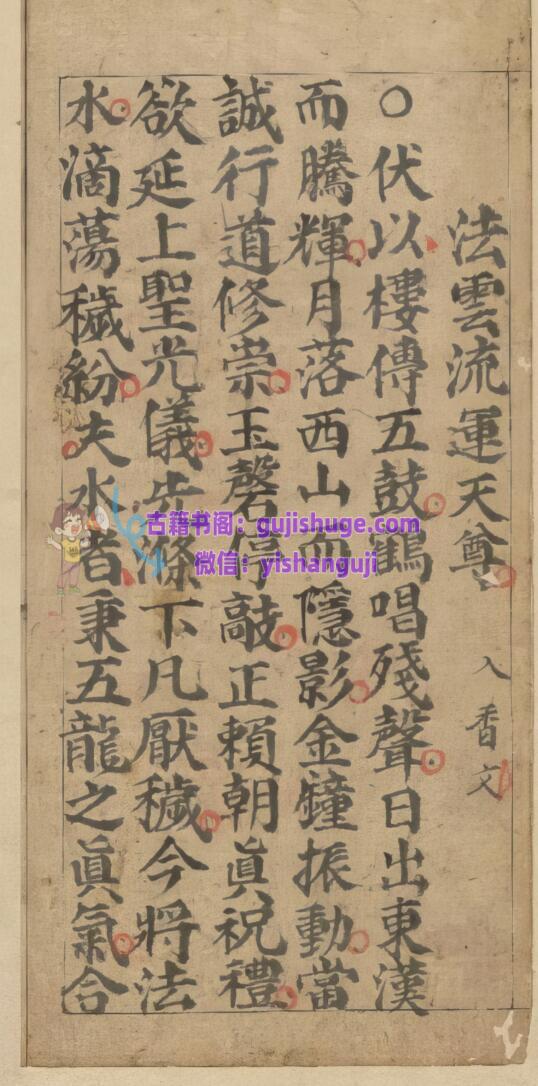 法雲流運天尊 入香文
○伏以樓傳五鼓鶴唱殘聲日出東漢
而騰輝月落西山而隱影金鐘振動當
誠行道修崇玉磬停敲正賴朝眞祝禮
欲延上聖光儀滌下凡厭穢今將法
水滴蕩穢紛夫水者秉五龍之眞氣合
古籍书阁：gujishuge.com
微信：yishanguji